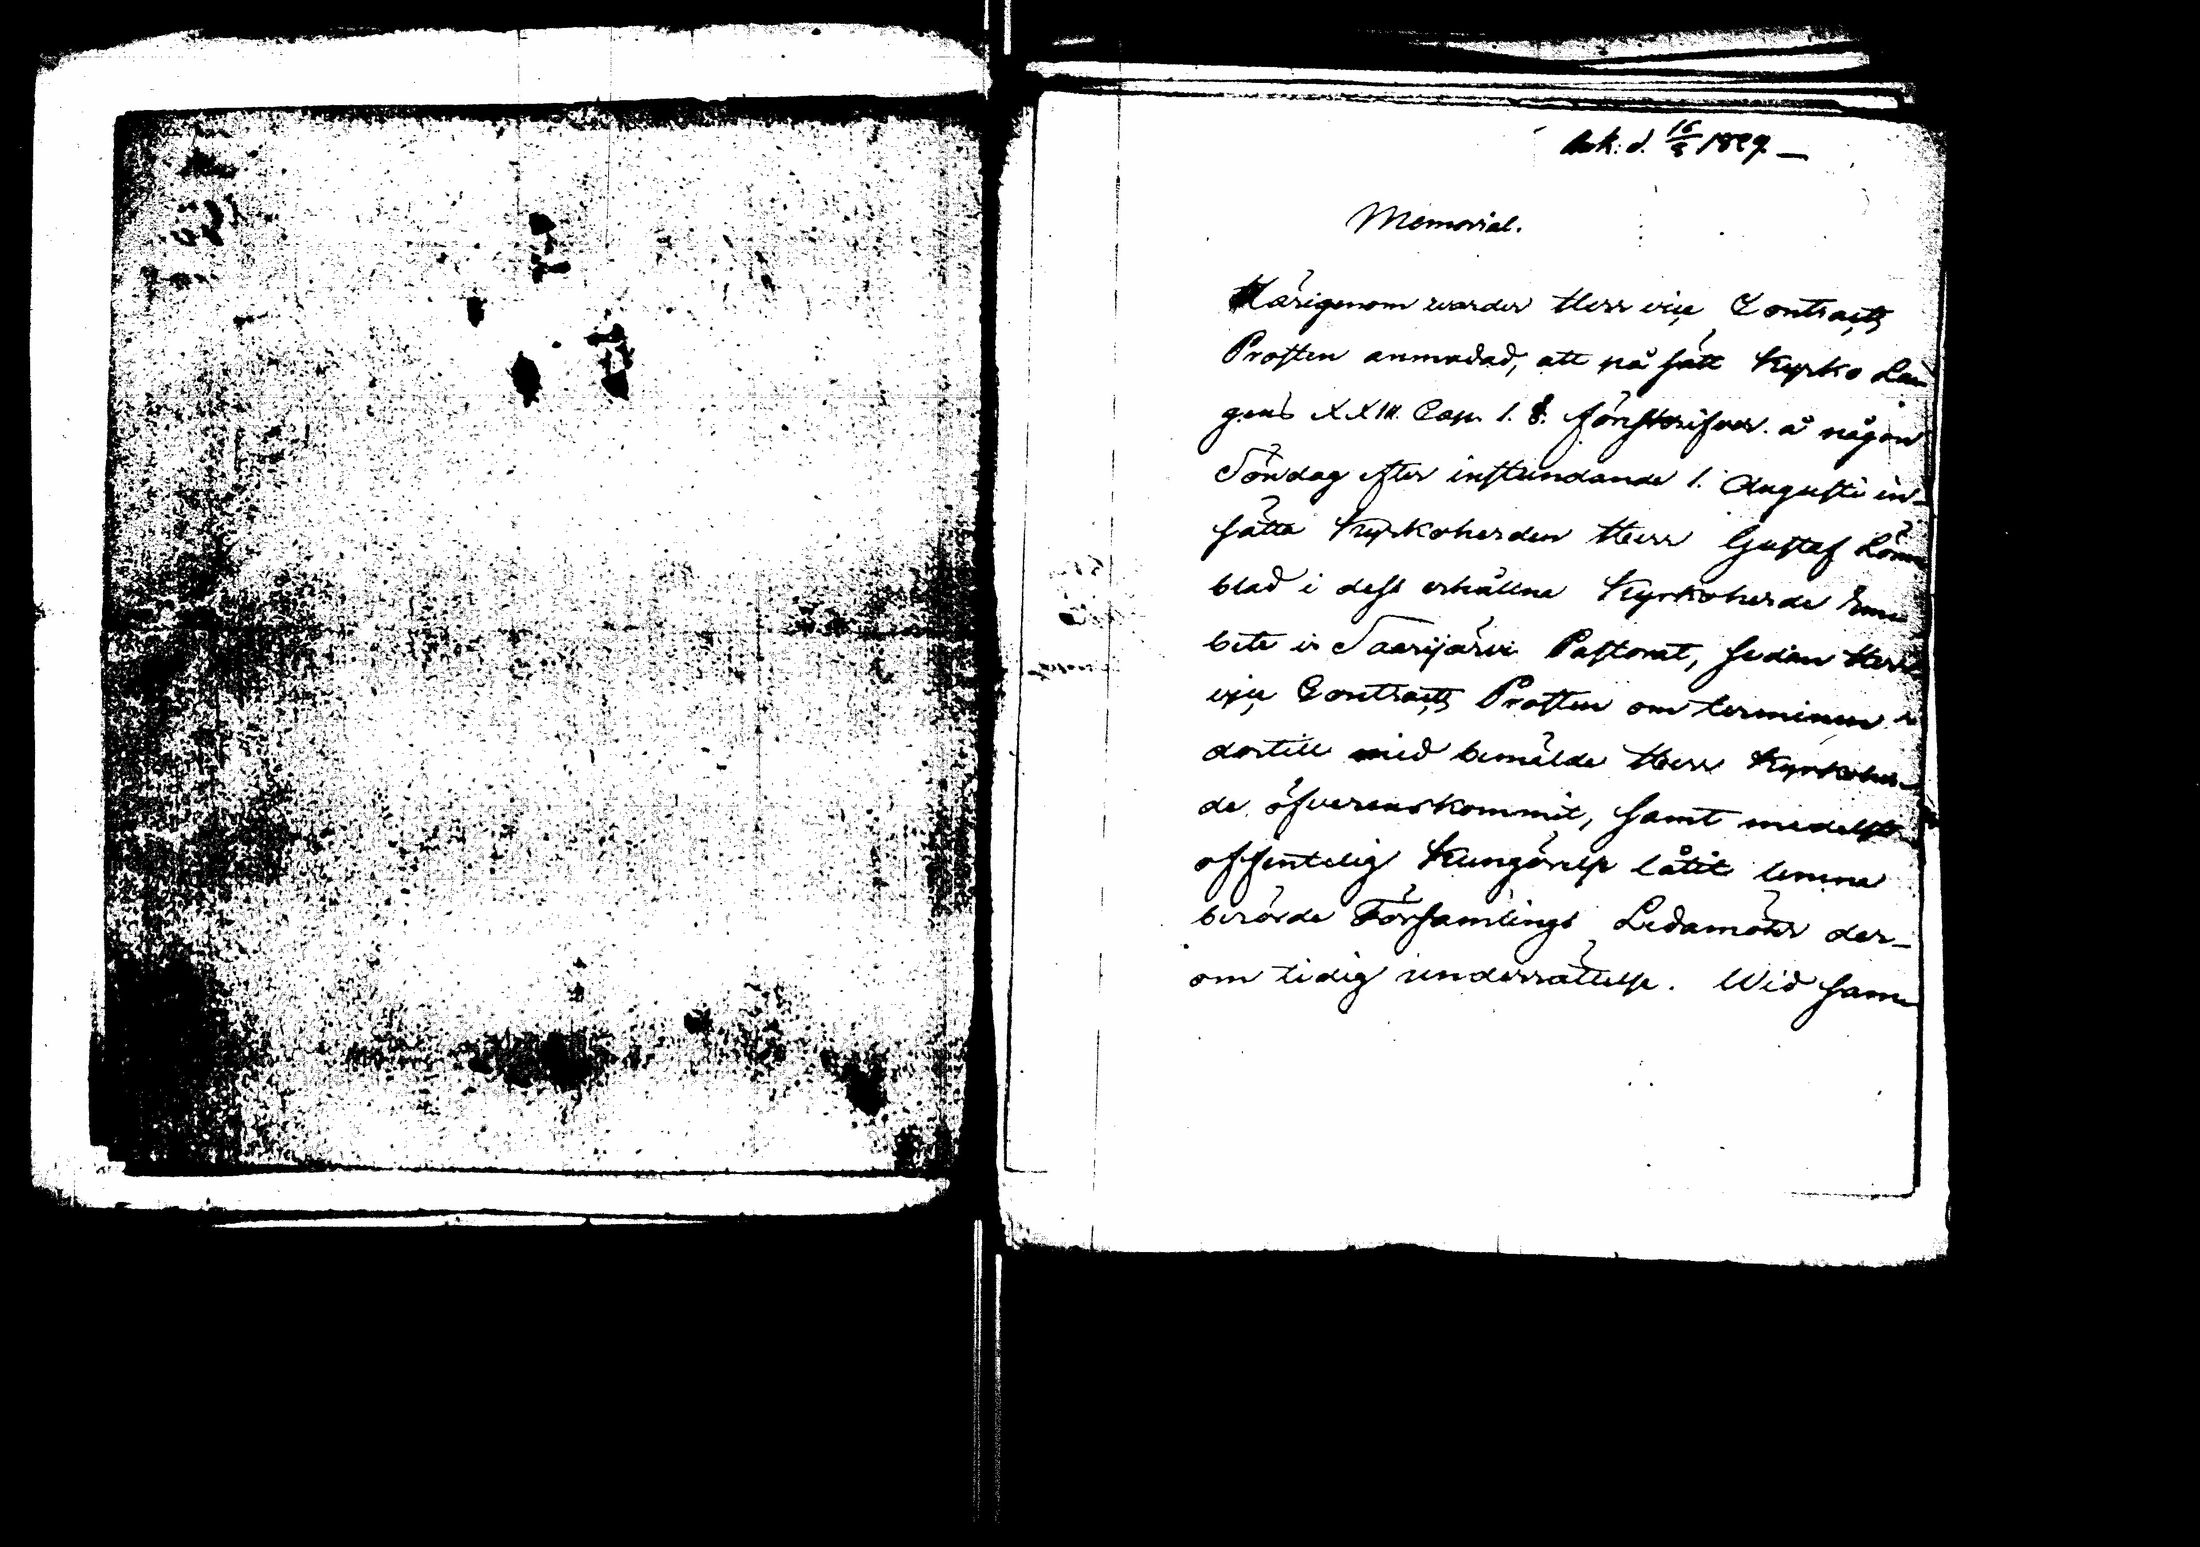 Ank. d. 15/8 1829.
Memorial.
Härigenom warder Herr vice Contracts
Prosten anmodad, att på sätt Kyrko La-
gens XXIII. Cap. 1. §. förskrifver å någon
Söndag efter instundande 1. Augusti in-
sätta Kyrkoherden Herr Gustaf Lönn
blad i dess erhållne Kyrkoherde Em-
bete i Saarijärvi Pastorat, sedan Herr
vice Contracts Prosten om terminen
dertill med bemälde Herr Kyrkoher-
de öfverenskommit, samt medelst
offentelig Kungörelse låtit lemna
berörde Församlings Ledamöter der-
om tidig underrättelse. Wid samma